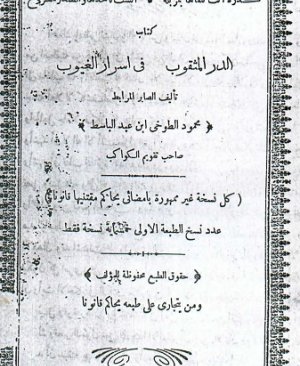 كتاب
الدر المثقوب فى اسرار الغيوب
تأليف الصابر المرابط
﴿ محمود الطوخى ابن عبد الباسط ﴾
صاحب تقويم الكواكب
( كل نسخة غير ممهورة بامضائى يحاكم مقتنيها قانونا )
عدد نسخ الطبعة الاولى خمسماية نسخة فقط
﴿ حقوق الطبع محفوظة للمؤلف ﴾
ومن يتجارى على طبعه يحاكم قانونا